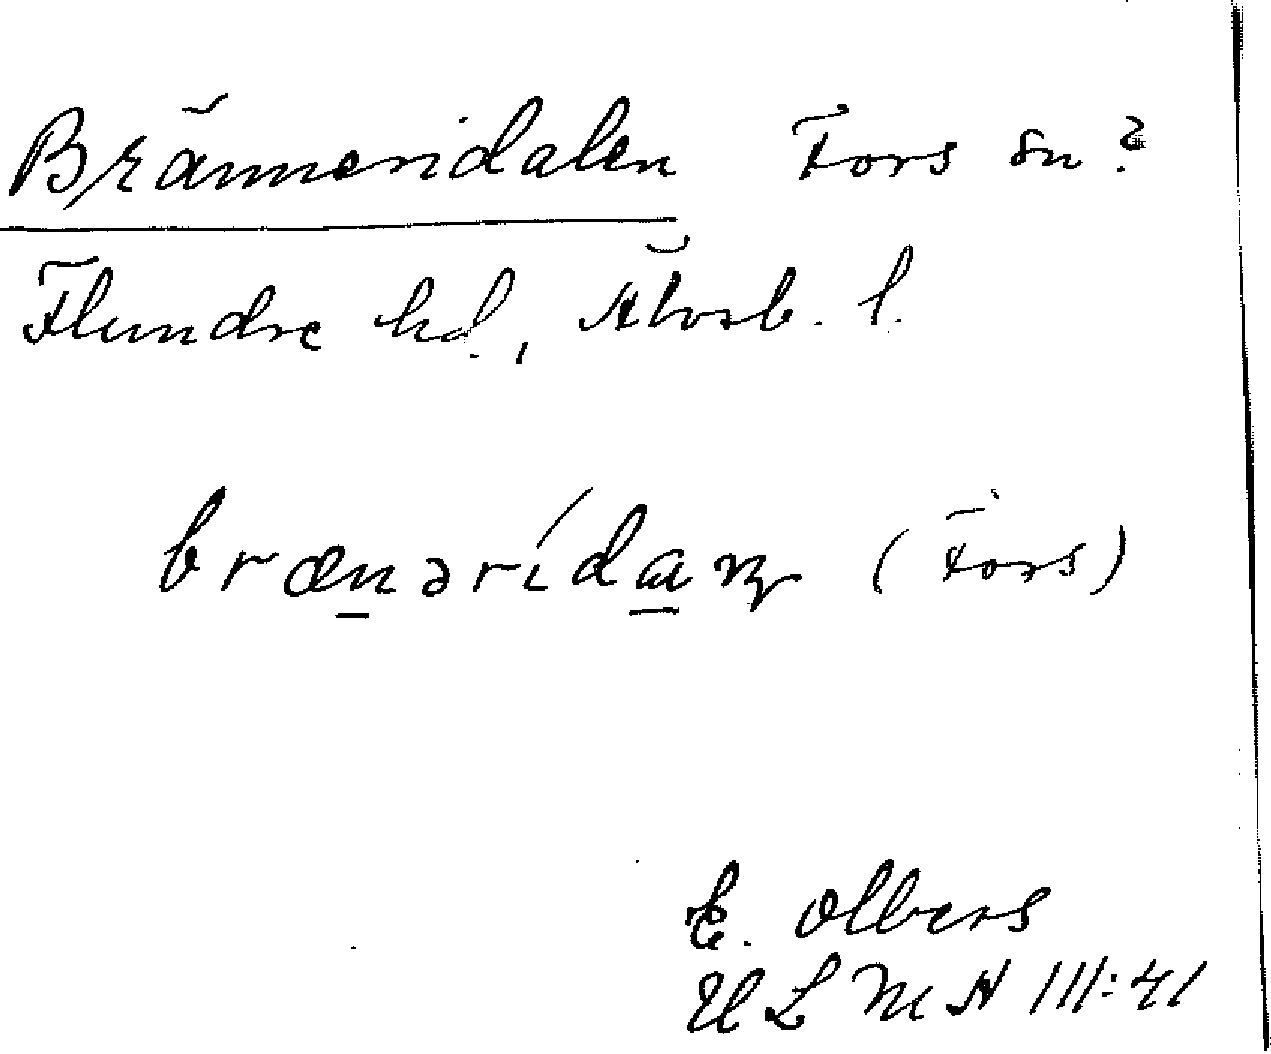 Bränneridalen Fors sn?
Flundre hd, Älvsb. l.
brænərídaɳ (Fors)
E. Olbers
ULMA 111:41